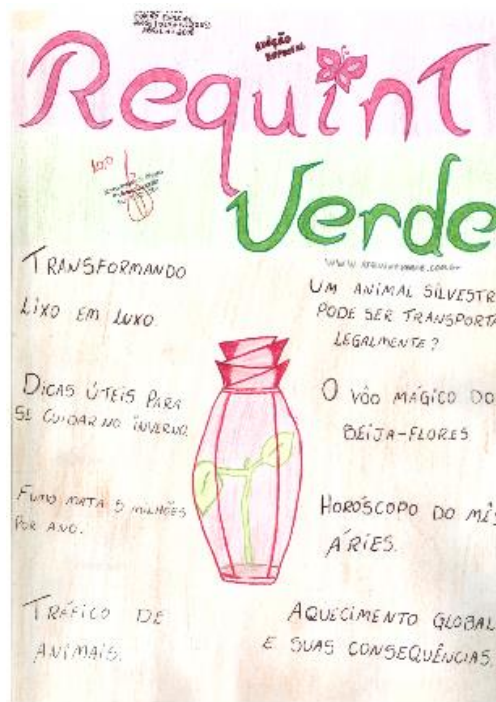 EDIÇÃO
ESPECIAL
RequinT
Verde
10,0
TRANSFORMANDO
LIXO EM LUXO.
DICAS ÚTEIS PARA
SE CUIDAR NO INVERNO.
FUMO MATA 5 MILHÕES
POR ANO.
TRÁFICO DE
ANIMAIS.
UM ANIMAL SILVESTR
PODE SER TRANSPORTA
LEGALMENTE?
O VÔO MÁGICO DO
BEIJA-FLORES
HORÓSCOPO DO MÊS
ÁRIES.
AQUECIMENTO GLOBAL
E SUAS CONSEQUÊNCIAS.